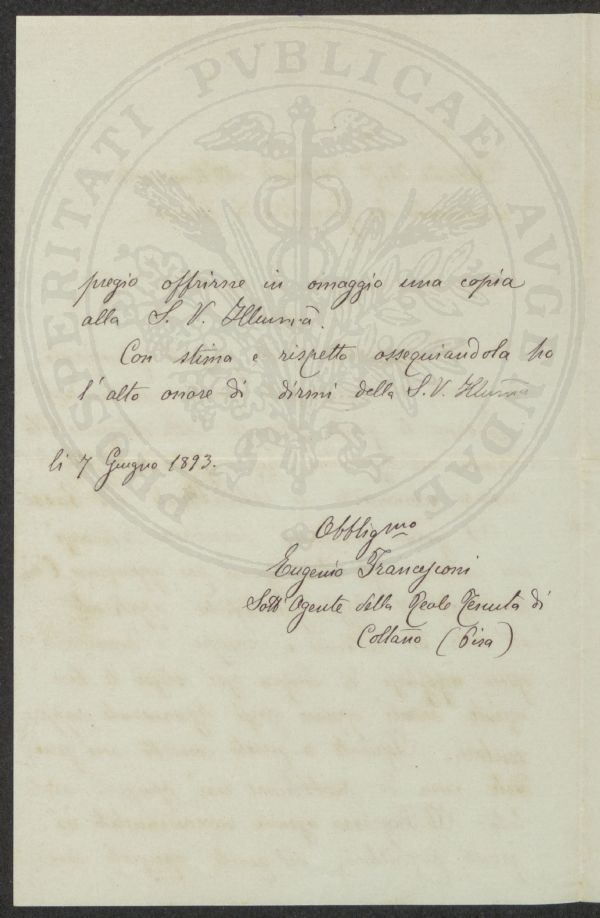 PROSPERITATI PVBLICAE AVGENDAE
pregio offrirne in omaggio una copia
alla S. V. Illumã.
Con stima e rispetto ossequiandola ho
l'alto onore di dirmi della S. V. Illumã
li 7 Giugno 1893.
Obbligmo
Eugenio Francesconi
Sott'Agente della Reale Tenuta di
Coltano (Pisa)